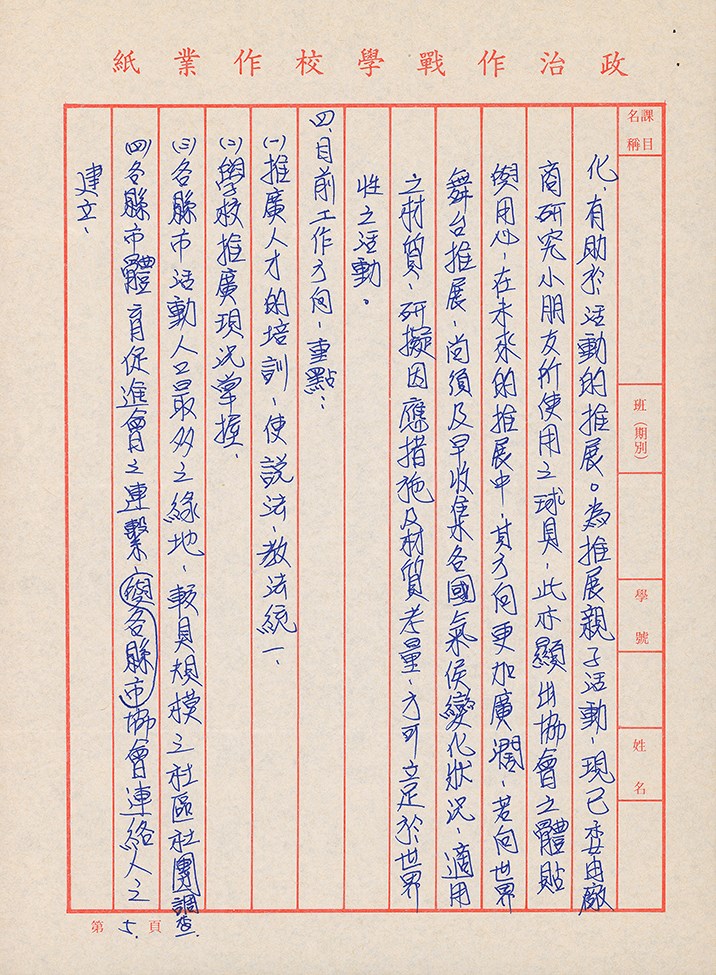 政治作戰學校作業紙
課目名稱
班(期別)
學號
姓名
化，有助於活動的推展。為推展親子活動，現已委由廠
商研究小朋友所使用之球具，此亦顯出協會之體貼
與用心，在未來的推展中，其方向更加廣濶，若向世界
舞台推展，尚須及早收集各國氣侯變化狀況，適用
之材質，研擬因應措施及材質考量，方可立足於世界
性之活動。
四、目前工作方向，重點：
(一)推廣人才的培訓，使說法、教法統一、
(二)學校推廣現況掌握、
(三)各縣市活動人口最多之綠地，較具規模之社區社團調查、
(四)各縣市體育促進會之連繫，與各縣市協會連絡人之
建立、
第5.頁